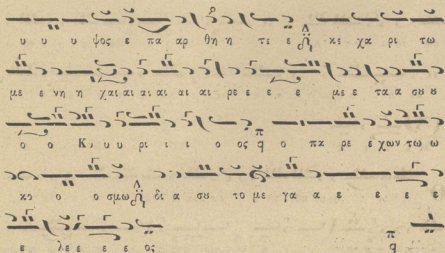 υ υ υ ψος ε πα αρ θη η τε ε κε χα ρι τω
με ε νη η χαι αι αι αι αι αι ρε ε ε ε με ε τα α σου
ο ο Κυ υ υ ρι ι ι ο ος ο πα ρε ε χων τω ω
κο ο ο σμω δι α σου το με γα α ε ε ε ε
ε λε ε ε ε ος